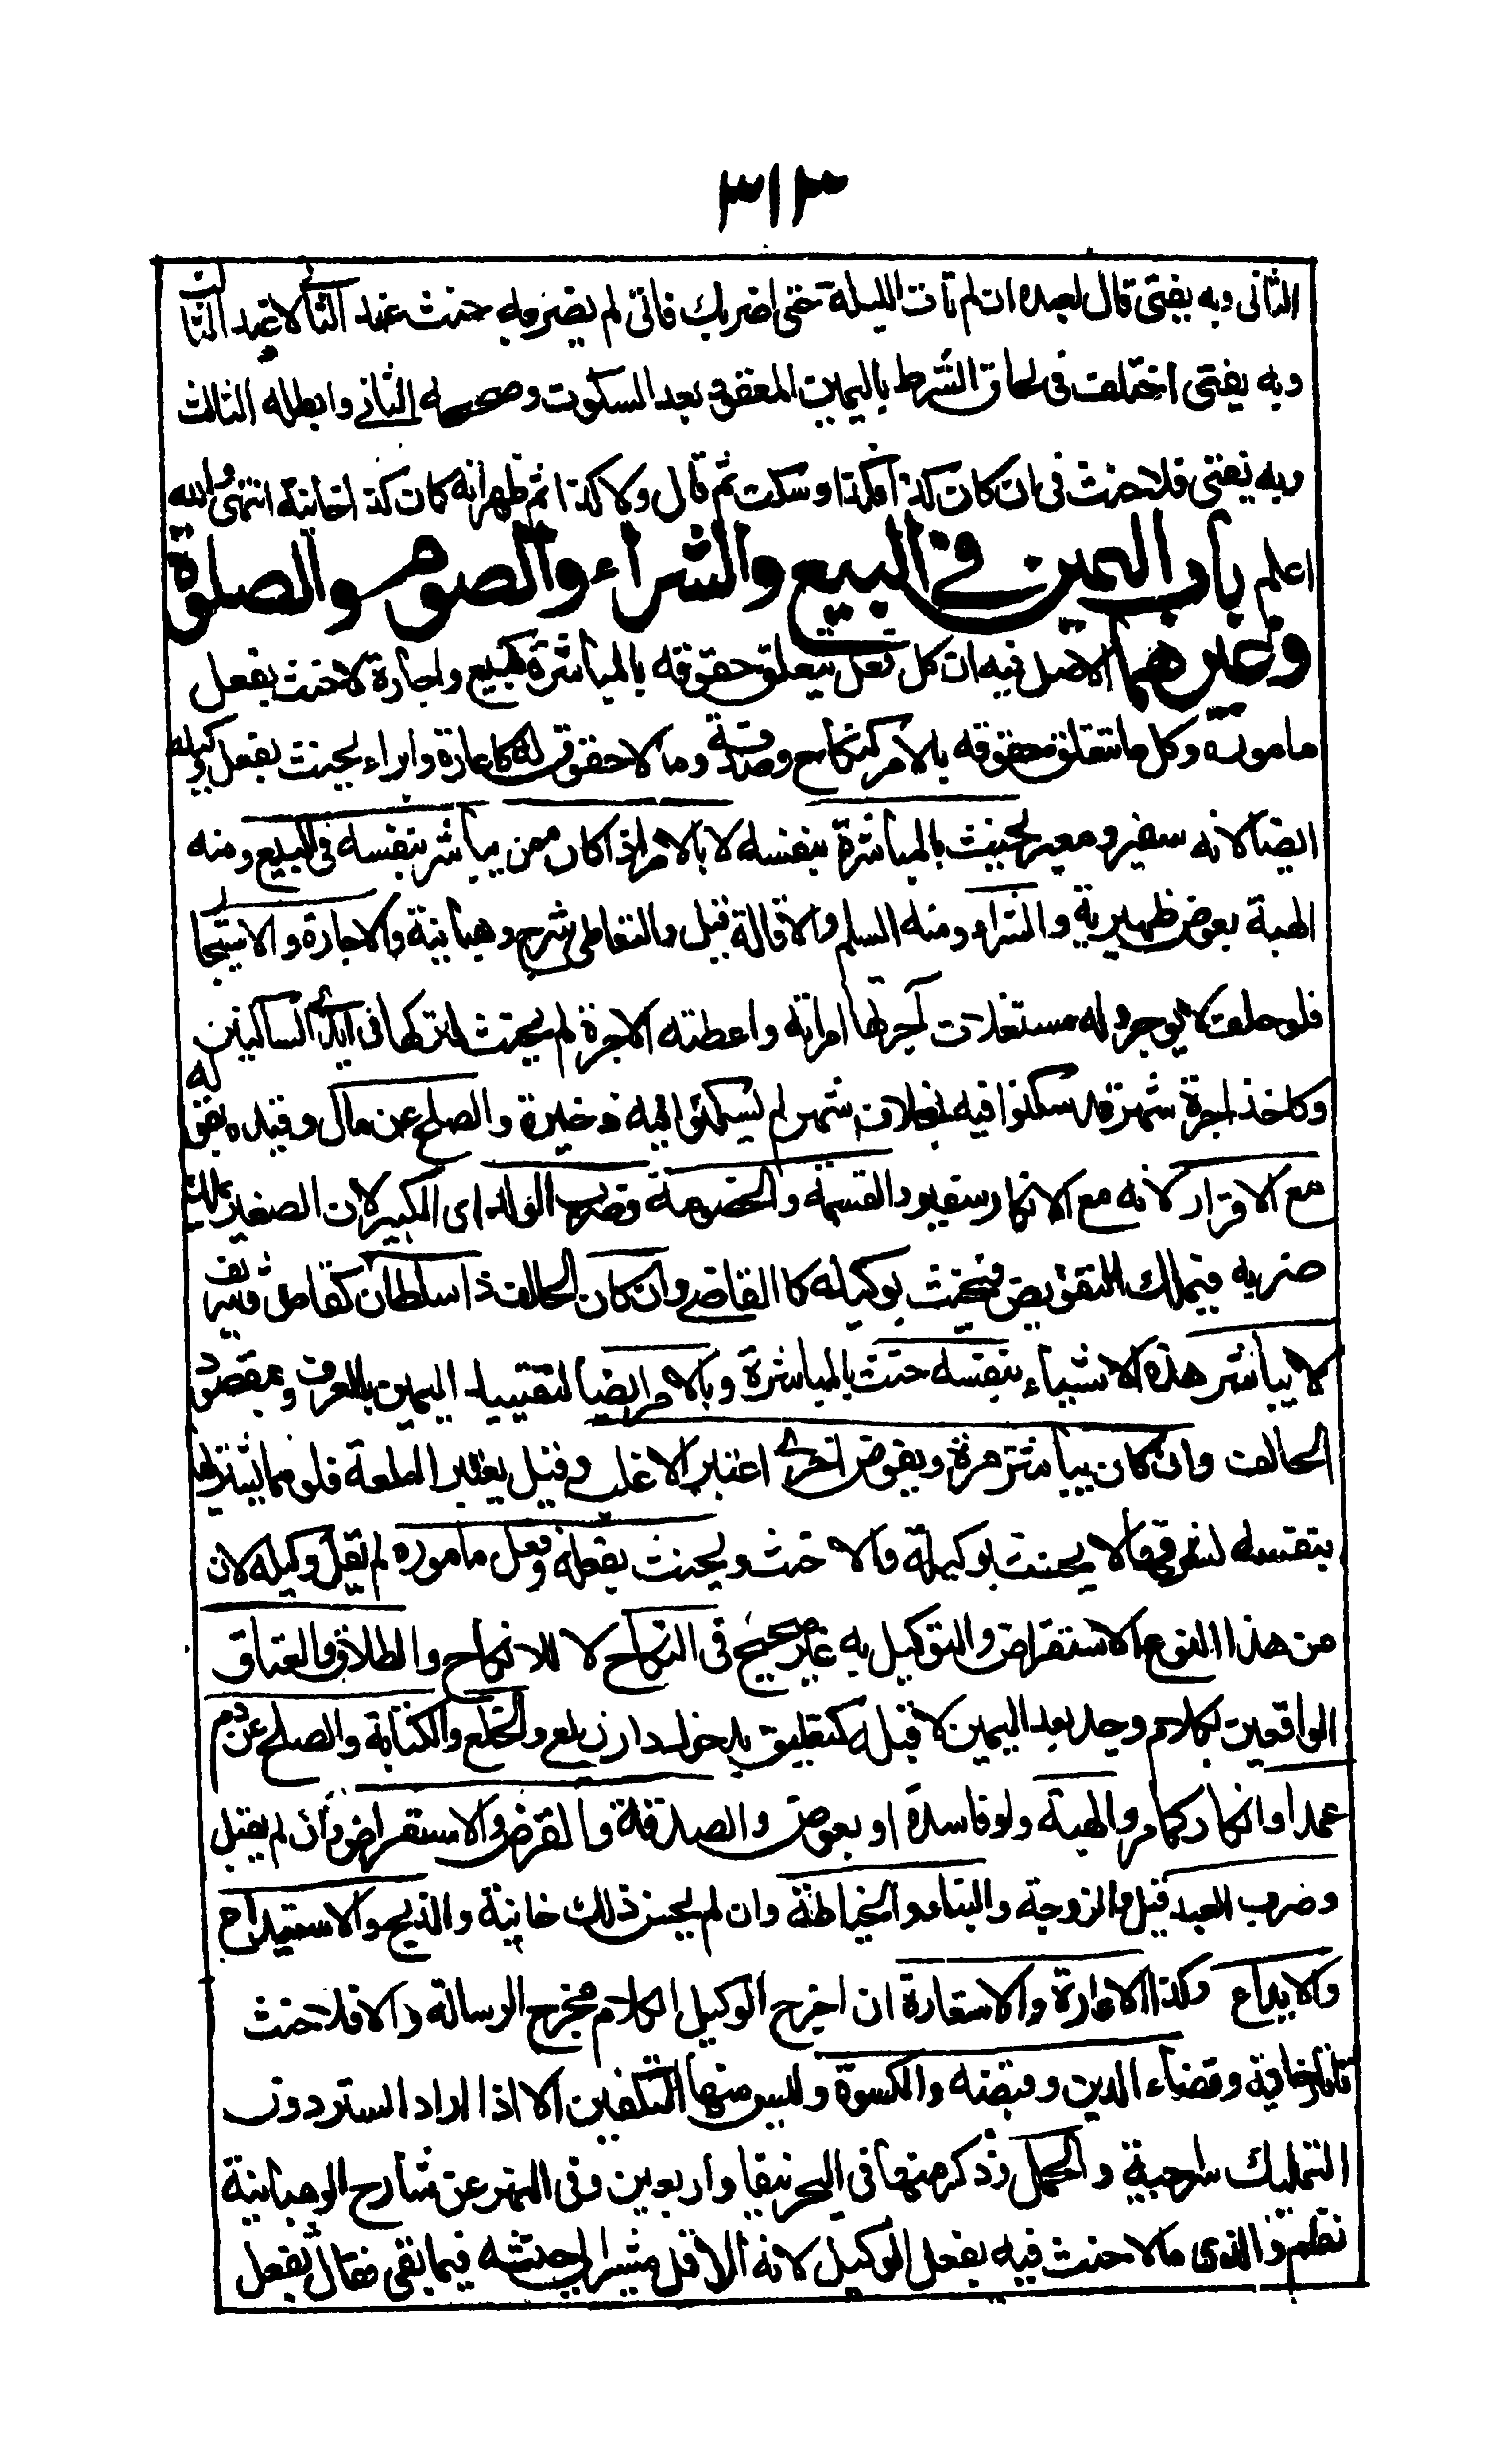 ٣١٣
الثانى وبه يفتى قال لعبده ان لم تات الليلة حتى اضربك فاتى لم يضربه حنث عند الثانى لا عند الثالث
وبه يفتى اختلف فى لحاق الشرط باليمين المعقود بعد السكوت وصححه الثانى وابطله الثالث
وبه يفتى فلا حنث فى ان كان كذا فكذا وسكت ثم قال ولا كذا ثم ظهر انه كان كذا خانية انتهى والله
اعلم باب اليمين فى البيع والشراء والصوم والصلوة
وغيرهما الاصل فيه ان كل فعل تتعلق حقوقه بالمباشرة كبيع واجارة لا حنث بفعل
ماموره وكل ما تتعلق حقوقه بالامر كنكاح وصدقة وما لا حقوق له كاعارة وابراء يحنث بفعل وكيله
ايضا لانه سفير ومعبر يحنث بالمباشرة بنفسه لا بالامر اذا كان ممن يباشر بنفسه فى البيع ومنه
الهبة بعوض ظهيرية والشراء ومنه السلم والاقالة قيل والتعاطى شرح وهبانية والاجارة والاستيجا
فلو حلف لا يوجر وله مستغلات آجرتها امراته واعطته الاجرة لم يحنث كتركها فى ايدى الساكنين
وكاخذ اجرة شهر قد سكنوا فيه بخلاف شهر لم يسكنوا فيه ذخيرة والصلح عن مال وقيده بقوله
مع الاقرار لانه مع الانكار سفير والقسمة والخصومة وضرب الولد اى الكبير لان الصغير يملك
ضربه فيملك التفويض فيحنث بوكيله كالقاضى وان كان الحالف ذا سلطان كقاض وشريف
لا يباشر هذه الاشياء بنفسه حنث بالمباشرة وبالامر ايضا لتقييد اليمين بالعرف وبمقصود
الحالف وان كان يباشر مرة ويفوض اخرى اعتبر الاغلب وقيل يعتبر السلعة فلو مما يشتريها
بنفسه لشرفها لا يحنث بوكيله والا حنث ويحنث بفعله وفعل ماموره لم يقل وكيله لان
من هذا النوع الاستقراض والتوكيل به غير صحيح فى النكاح لا الانكاح والطلاق والعتاق
الواقعين بكلام وجد بعد اليمين لا قبله كتعليق بدخول دار زيلعى والخلع والكتابة والصلح عن دم
عمد او انكار كما مر والهبة ولو فاسدة او بعوض والصدقة والقرض والاستقراض وان لم يقبل
وضرب العبد قيل والزوجة والبناء والخياطة وان لم يحسن ذلك خانية والذبح والاستيداع
والايداع وكذا الاعارة والاستعارة ان اخرج الوكيل الكلام مخرج الرسالة والا فلا حنث
تاتارخانية وقضاء الدين وقبضه والكسوة وليس منها التكفين الا اذا اراد الستر دون
التمليك سراجية والحمل وذكر منها فى البحر نيفا واربعين وفى النهر عن شارح الوهبانية
نظم والذى ما لا حنث فيه بفعل الوكيل لانه الاقل مشيرا لحنثه فيما بقى فقال بفعل